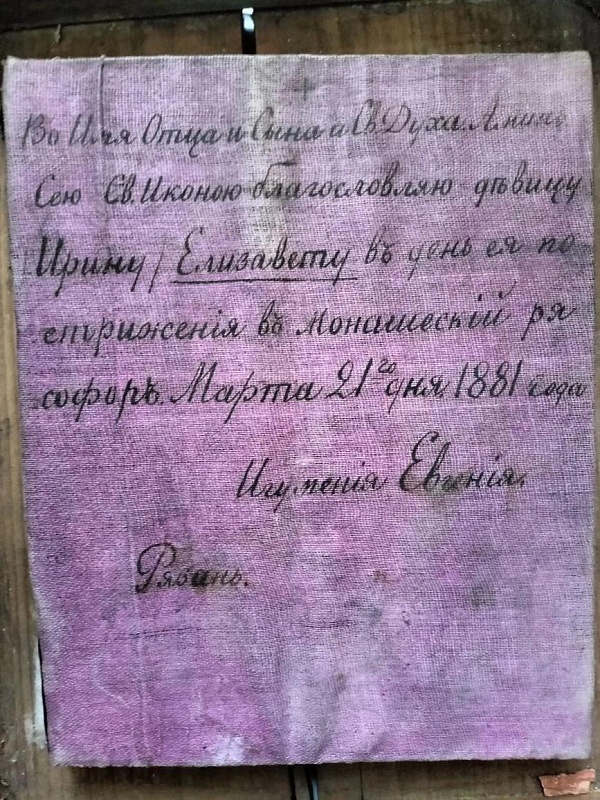 Во Имя Отца и Сына и Св. Духа. Аминь
Сею Св. Иконою благословляю дѣвицу
Ирину / Елизавету въ день ея по
стриженія въ монашескій ря
софоръ. Марта 21го дня. 1881 года
Игуменія Евгенія.
Рязань.